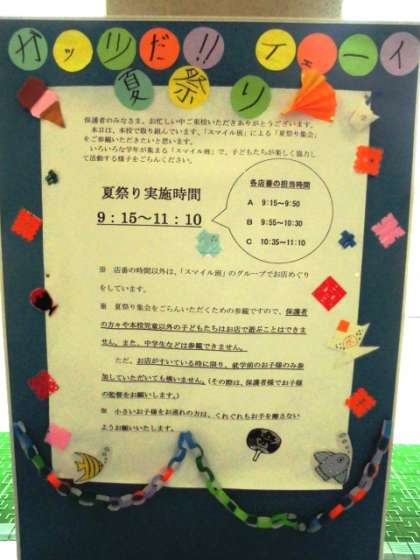 ガッツだ!! イェーイ
夏祭り
保護者のみなさま。お忙しい中ご来校いただきありがとうございます。
本日は、本校で取り組んでいます、「スマイル班」による「夏祭り集会」
をご参観いただきたいと思います。
いろいろな学年が集まる「スマイル班」で、子どもたちが楽しく協力し
て活動する様子をごらんください。
夏祭り実施時間
9:15～11:10
各店番の担当時間
A 9:15～9:50
B 9:55～10:30
C 10:35～11:10
※ 店番の時間以外は、「スマイル班」のグループでお店めぐり
をしています。
※ 夏祭り集会をごらんいただくための参観ですので、保護者
の方々や本校児童以外の子どもたちはお店で遊ぶことはできま
せん。また、中学生などは参観できません。
ただ、お店がすいている時に限り、就学前のお子様のみ参
加していただいても構いません。(その際は、保護者様でお子様
の監督をお願いします。)
※ 小さいお子様をお連れの方は、くれぐれもお手を離さない
ようお願いいたします。